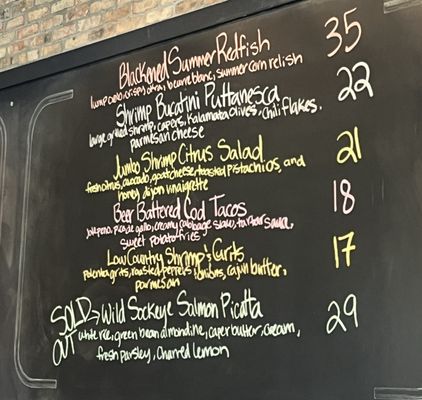 Blackened Summer Redfish 35
lump crab, crispy okra, beurre blanc, summer corn relish
Shrimp Bucatini Puttanesca 22
large grilled shrimp, capers, kalamata olives, chili flakes,
parmesan cheese
Jumbo Shrimp Citrus Salad 21
fresh citrus, avocado, goat cheese, toasted pistachios, and
honey dijon vinaigrette
Beer Battered Cod Tacos 18
jalapeno, pico de gallo, creamy cabbage slaw, tartar sauce,
sweet potato fries
Low Country Shrimp & Grits 17
Polenta grits, roasted peppers, onions, cajun butter,
parmesan
SOLD → Wild Sockeye Salmon Picatta 29
OUT white rice, green bean almondine, caper butter, cream,
fresh parsley, charred lemon